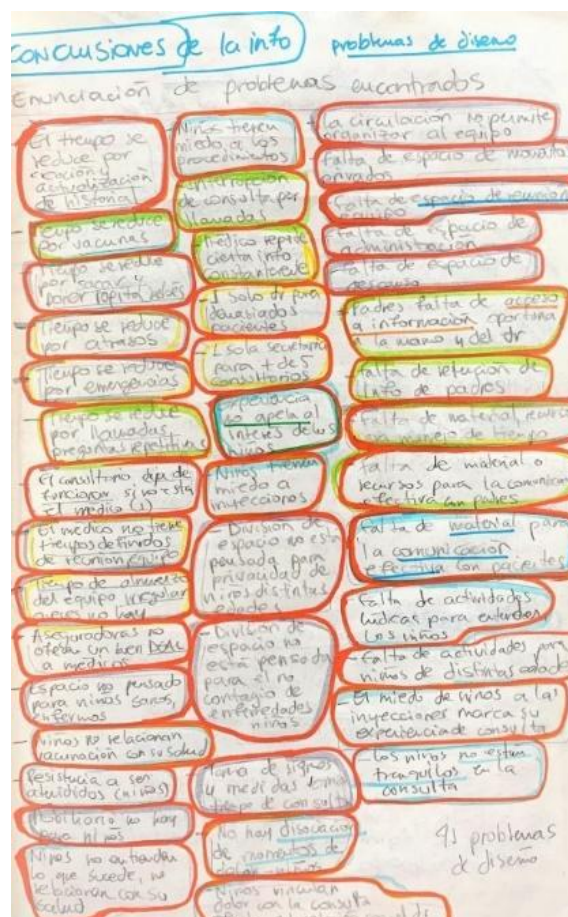 Conclusiones de la info
problemas de diseño
Enunciación de problemas encontrados
El tiempo se
reduce por
creación y
actualización
de historial
- tiempo se reduce
por vacunas
- Tiempo se reduce
por sacar y
poner ropita bebés
- Tiempo se reduce
por atrasos
- Tiempo se reduce
por emergencias
- Tiempo se reduce
por llamadas,
preguntas repetitivas
El consultorio deja de
funcionar si no está
el medico (1)
- El medico no tiene
tiempos definidos
de reunión equipo
- Tiempo de almuerzo
del equipo irregular
a veces no hay
- Aseguradoras no
ofrecen un buen
a médicos
- Espacio no pensado
para niños sanos,
enfermos
- Niños no relacionan
vacunación con su salud
- Resistencia a ser
atendidos (niños)
- Mobiliario no hay
para niños
- Niños no entienden
lo que sucede, no
relacionan con su
salud
- Niños tienen
miedo a los
procedimientos
- Interrupción
de consulta por
llamadas
- Medico repite
cierta info
constantemente
- 1 solo dr para
demasiados
pacientes
- 1 sola secretaria
para + de 5
consultorios
- Experiencia
no apela al
interés de los
niños
- Niños tienen
miedo a
inyecciones
- División de
espacio no está
pensada para
privacidad de
niños distintas
edades
- División de
espacio no
está pensada
para el no
contagio de
enfermedades
niños
- Toma de signos
y medidas
de consulta
- No hay disociación
de momentos de
dolor - niños
- Niños vinculan
dolor con la consulta
- la circulación no permite
organizar al equipo
- falta de espacio de
privados
- falta de espacio de reunión
equipo
- falta de espacio de
administración
- falta de espacio de
descanso
- Padres falta de acceso
a información oportuna
a la mano y del dr
- falta de retención de
info de padres
- falta de material, recursos
manejo de tiempo
- falta de material o
recursos para la comunicación
efectiva con padres
- falta de material para
la comunicación
efectiva con pacientes
- falta de actividades
lúdicas para entender
los niños
- falta de actividades para
niños de distintas edades
- El miedo de niños a las
inyecciones marca su
experiencia de consulta
- los niños no están
tranquilos en la
consulta
41 problemas
de diseño